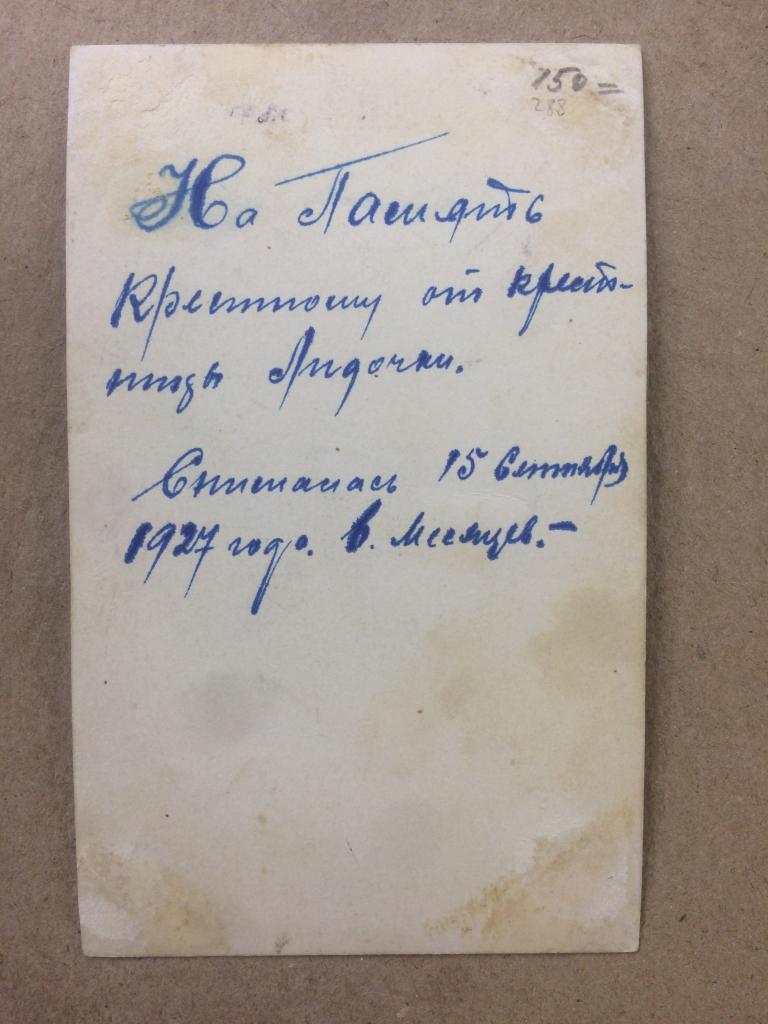 150=
288
На Память
Крестному от крест-
ницы Лидочки.
Снималась 15 Сентября
1927 года. 6. Месяцев.-